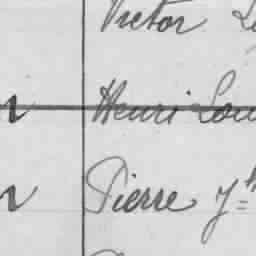 Victor
Henri Lou
Pierre Y=